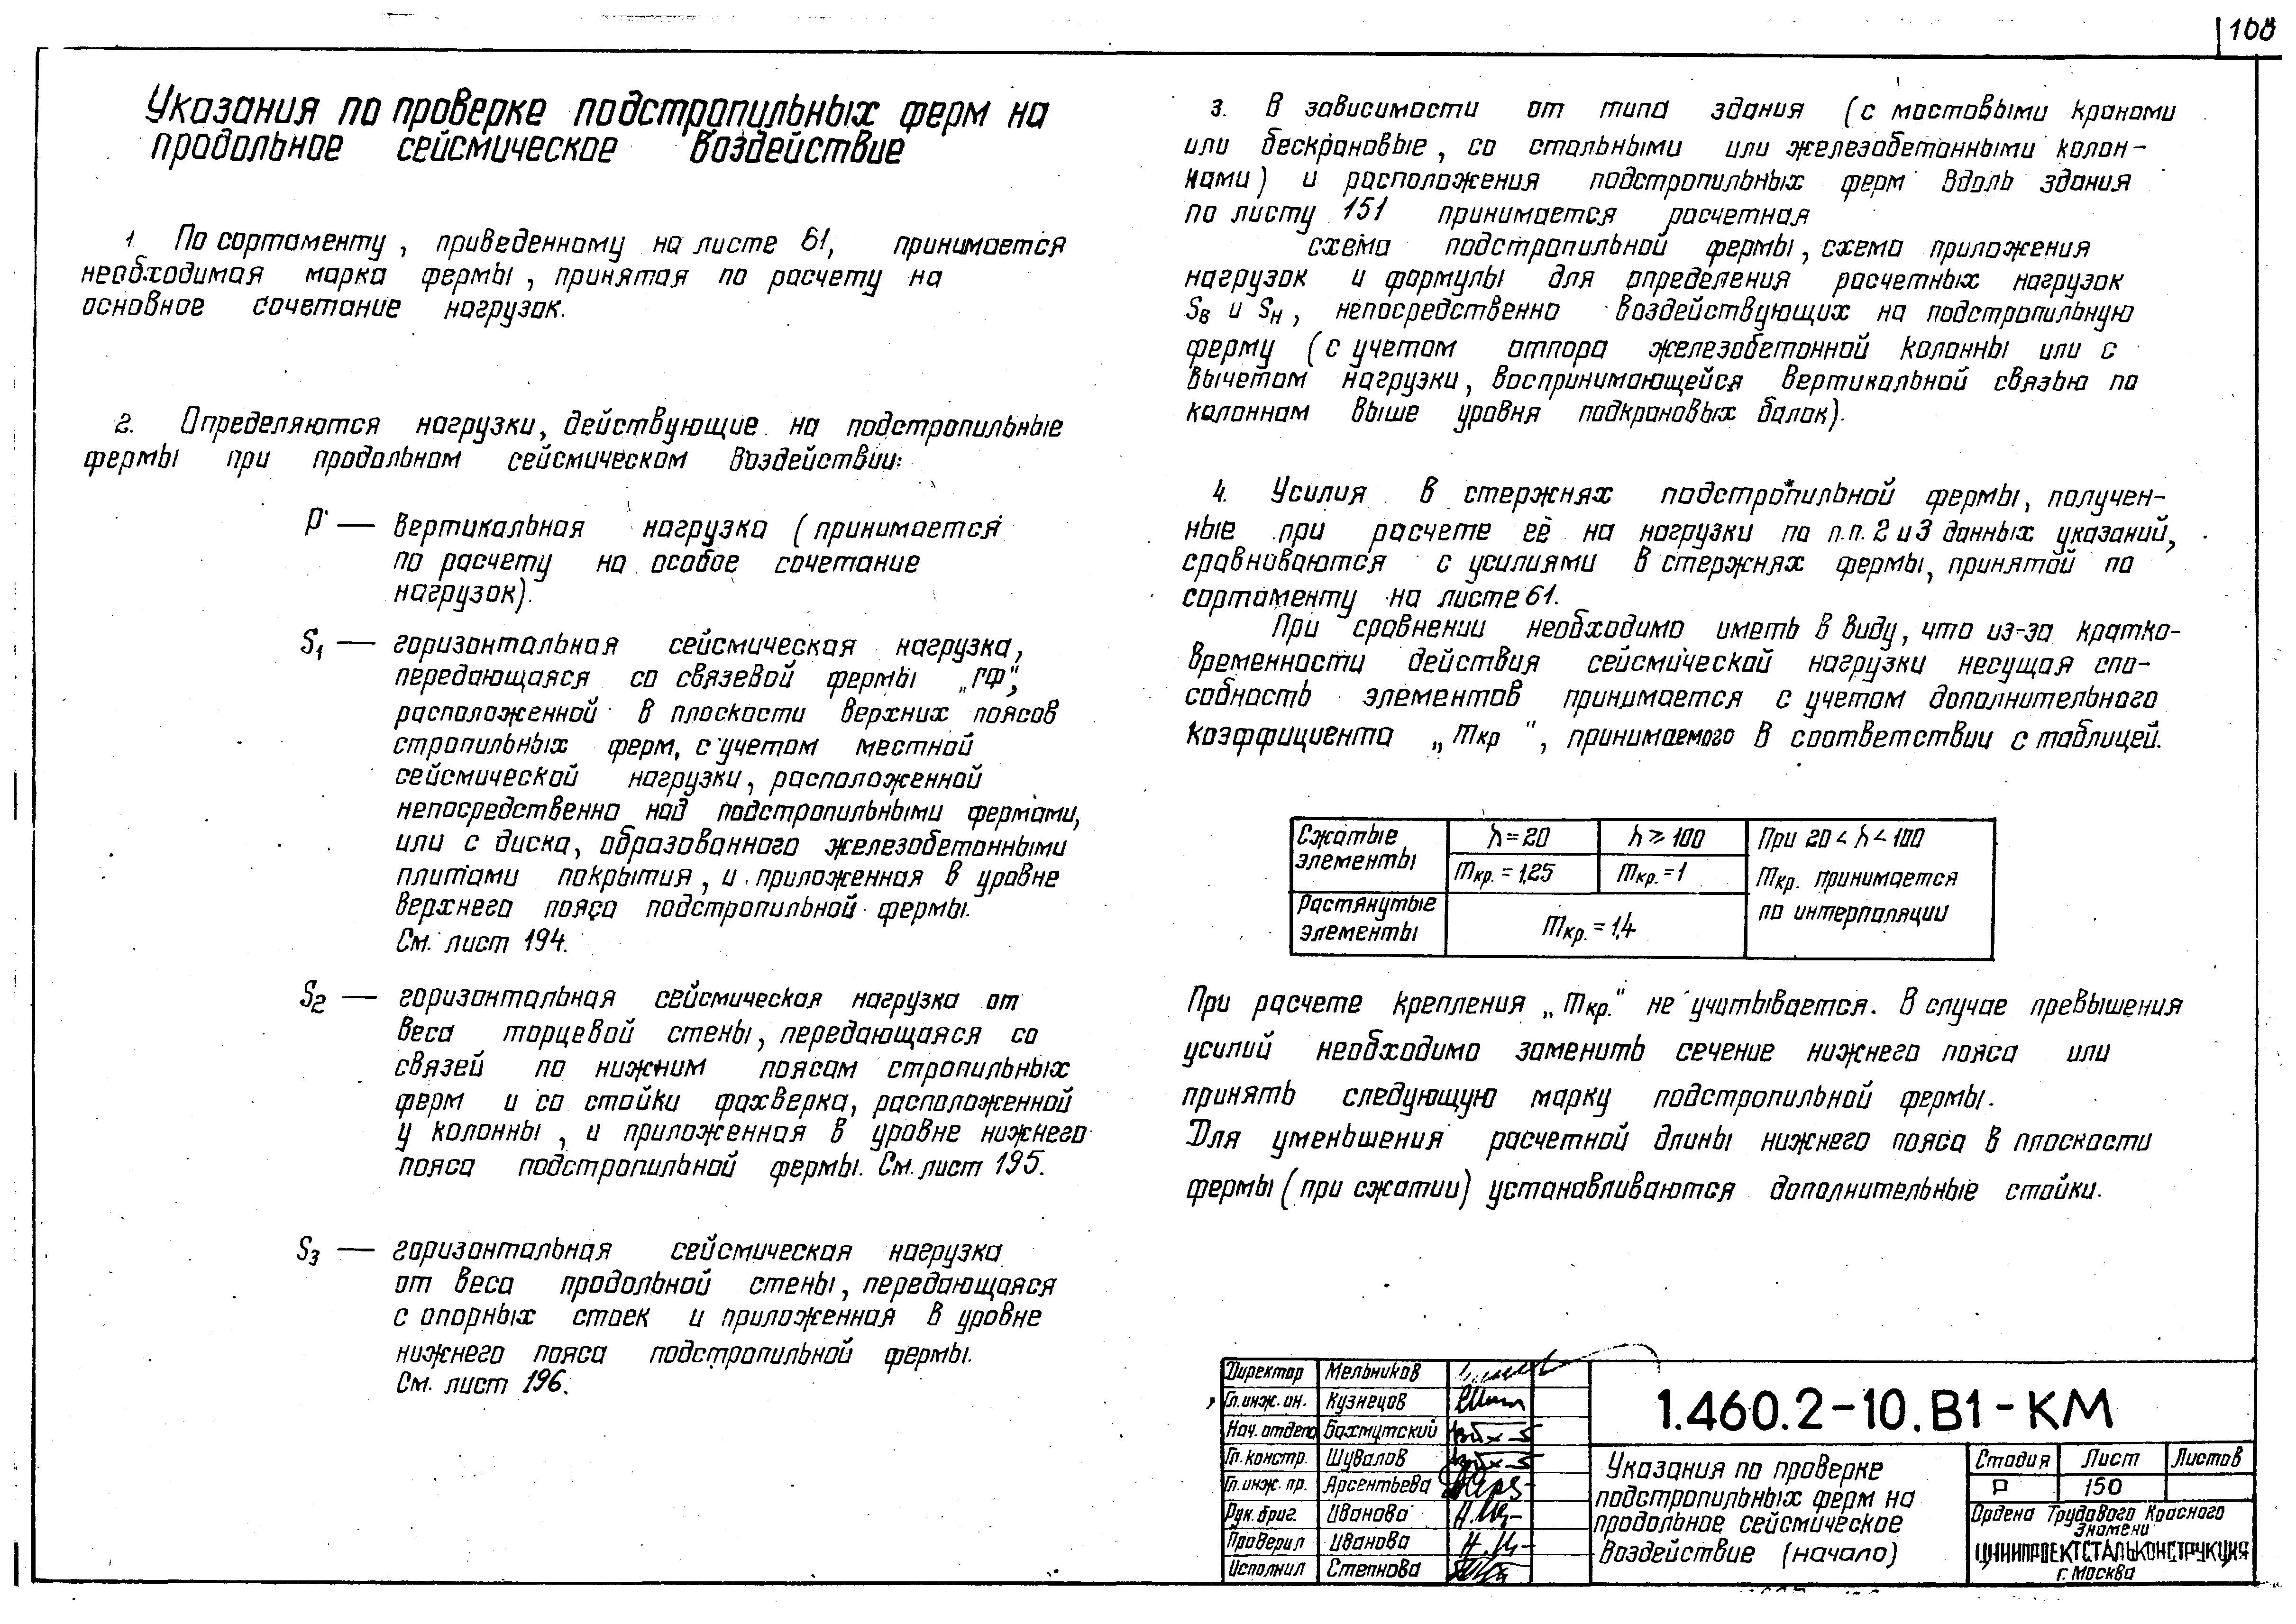 168
Указания по проверке подстропильных ферм на
продольное сейсмическое воздействие
1. По сортаменту, приведенному на листе 61, принимается
необходимая марка фермы, принятая по расчету на
основное сочетание нагрузок.
2. Определяются нагрузки, действующие на подстропильные
фермы при продольном сейсмическом воздействии:
P — вертикальная нагрузка (принимается
по расчету на особое сочетание
нагрузок).
S1 — горизонтальная сейсмическая нагрузка,
передающаяся со связевой фермы „ГФ“,
расположенной в плоскости верхних поясов
стропильных ферм, с учетом местной
сейсмической нагрузки, расположенной
непосредственно над подстропильными фермами,
или с диска, образованного железобетонными
плитами покрытия, и приложенная в уровне
верхнего пояса подстропильной фермы.
См. лист 194.
S2 — горизонтальная сейсмическая нагрузка от
веса торцевой стены, передающаяся со
связей по нижним поясам стропильных
ферм и со стойки фахверка, расположенной
у колонны, и приложенная в уровне нижнего
пояса подстропильной фермы. См. лист 195.
S3 — горизонтальная сейсмическая нагрузка
от веса продольной стены, передающаяся
с опорных стоек и приложенная в уровне
нижнего пояса подстропильной фермы.
См. лист 196.
3. В зависимости от типа здания (с мостовыми кранами
или бескрановые, со стальными или железобетонными колон-
нами) и расположения подстропильных ферм вдоль здания
по листу 151 принимается расчетная
схема подстропильной фермы, схема приложения
нагрузок и формулы для определения расчетных нагрузок
Sв и Sн, непосредственно воздействующих на подстропильную
ферму (с учетом отпора железобетонной колонны или с
вычетом нагрузки, воспринимающейся вертикальной связью по
колоннам выше уровня подкрановых балок).
4. Усилия в стержнях подстропильной фермы, получен-
ные при расчете её на нагрузки по п.п. 2 и 3 данных указаний,
сравниваются с усилиями в стержнях фермы, принятой по
сортаменту на листе 61.
При сравнении необходимо иметь в виду, что из-за кратко-
временности действия сейсмической нагрузки несущая спо-
собность элементов принимается с учетом дополнительного
коэффициента „mкр“, принимаемого в соответствии с таблицей.
Сжатые элементы λ=20 λ≥100 При 20<λ<100
mкр.=1,25 mкр.=1 mкр. принимается
Растянутые элементы mкр.=1,4 по интерполяции
При расчете крепления „mкр.“ не учитывается. В случае превышения
усилий необходимо заменить сечение нижнего пояса или
принять следующую марку подстропильной фермы.
Для уменьшения расчетной длины нижнего пояса в плоскости
фермы (при сжатии) устанавливаются дополнительные стойки.
Директор Мельников
Гл. инж. ин. Кузнецов
Нач. отдела Бахмутский
Гл. констр. Шувалов
Гл. инж. пр. Арсентьева
Рук. бриг. Иванова
Проверил Иванова
Исполнил Степнова
1.460.2-10.В1-КМ
Указания по проверке
подстропильных ферм на
продольное сейсмическое
воздействие (начало)
Стадия Лист Листов
Р 150
Ордена Трудового Красного
Знамени
ЦНИИПРОЕКТСТАЛЬКОНСТРУКЦИЯ
г. Москва